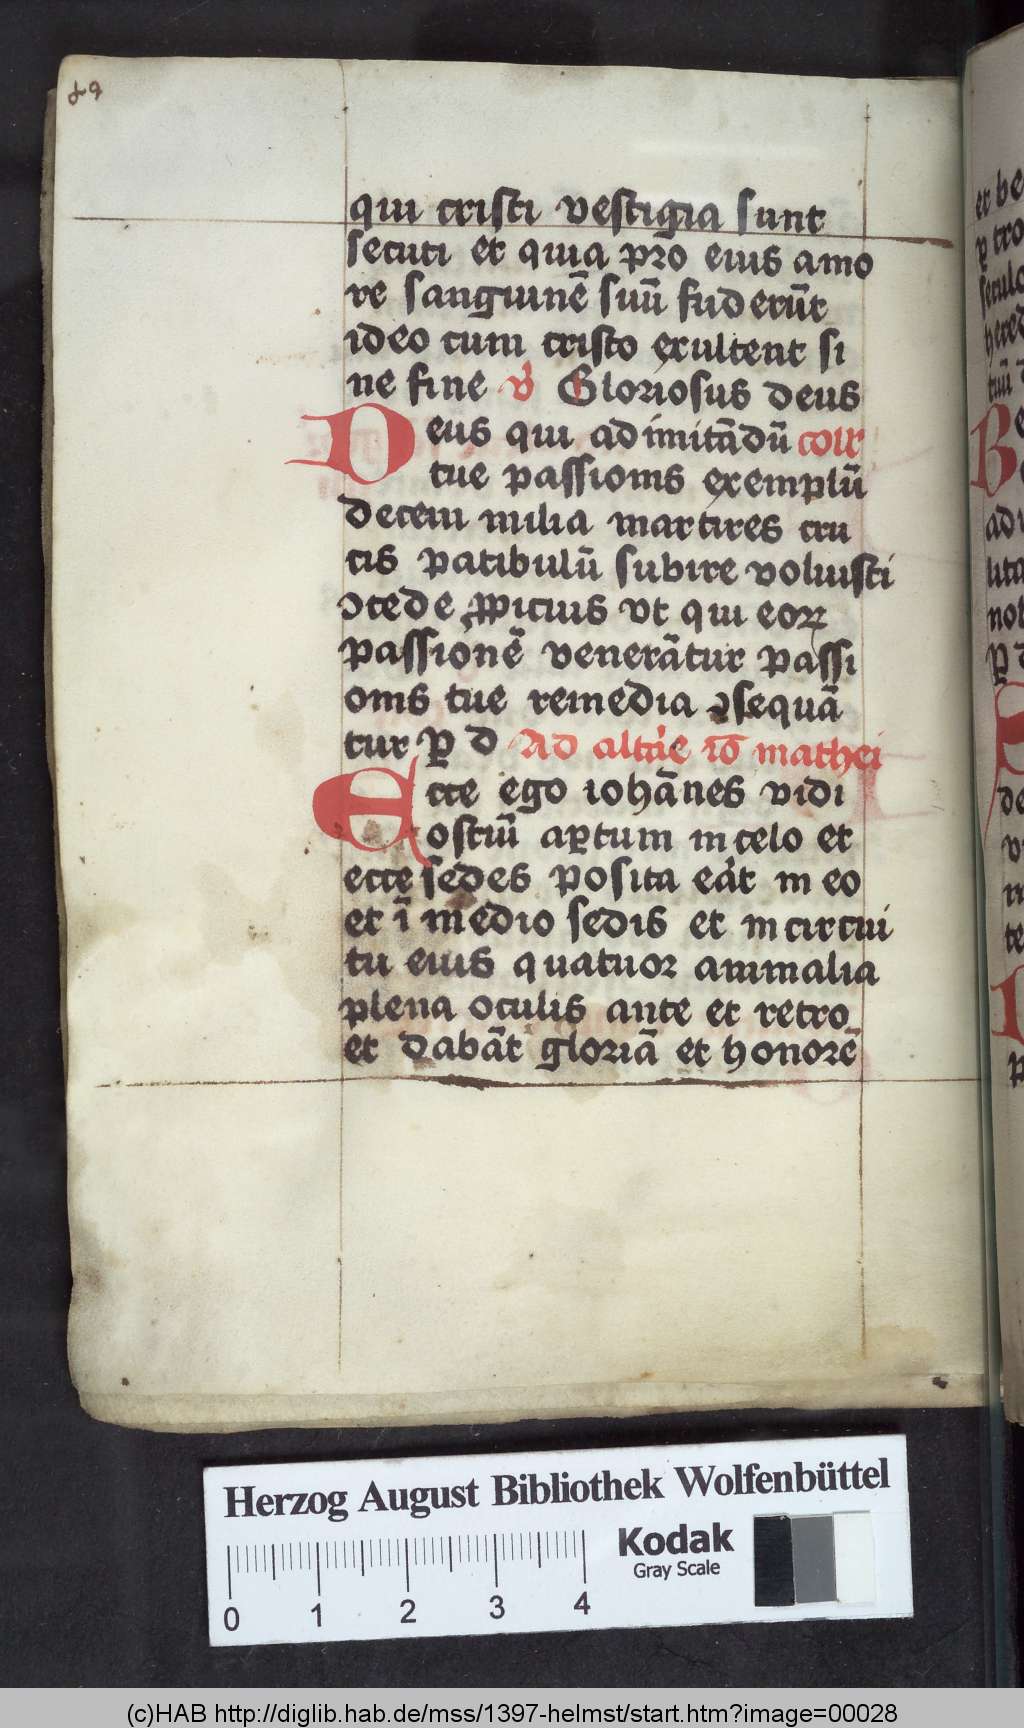 qui cristi vestigia sunt
secuti et quia pro eius amo
re sanguinē suū fuderūt
ideo cum cristo exultent si
ne fine v̉ Gloriosus deus
Deus qui ad imitādū coll̄
tue passionis exemplū
decem milia martires cru
cis patibulū subire voluisti
ꝯcede ꝓpicius vt qui eoꝝ
passionē venerātur passi
onis tue remedia ꝯsequā
tur ꝑ d Ad altāe iō mathei
Ecce ego iohānes vidi
ostiū aꝑtum in celo et
ecce sedes posita eāt in eo
et ī medio sedis et in circui
tu eius quatuor animalia
plena oculis ante et retro
et dabāt gloriā et honorē
et be
ꝑ
ad
ꝑ
de
Herzog August Bibliothek Wolfenbüttel
Kodak
Gray Scale
0 1 2 3 4
(c)HAB http://diglib.hab.de/mss/1397-helmst/start.htm?image=00028